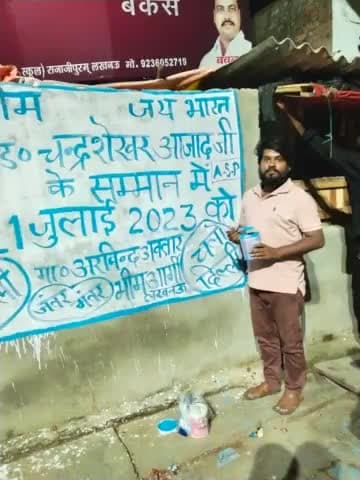 बक्स
स्कूल) राजाजीपुरम् लखनऊ मो. 9236052719
ीम जय भारत
ड० चन्द्रशेखर आजाद जी
के सम्मान में A.S.P
1 जुलाई 2023 को
गा० अरविन्द अवतार चलो दिल्ली
जंतर मंतर भीम आर्मी
लखनऊ